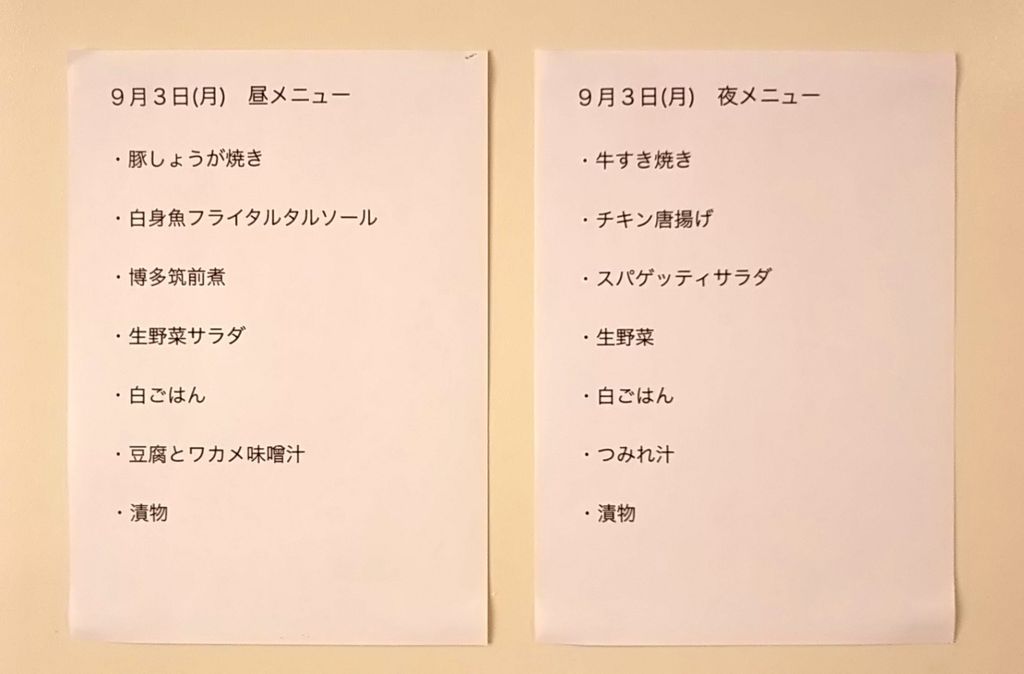 ９月３日(月)　昼メニュー
・豚しょうが焼き
・白身魚フライタルタルソール
・博多筑前煮
・生野菜サラダ
・白ごはん
・豆腐とワカメ味噌汁
・漬物
９月３日(月)　夜メニュー
・牛すき焼き
・チキン唐揚げ
・スパゲッティサラダ
・生野菜
・白ごはん
・つみれ汁
・漬物